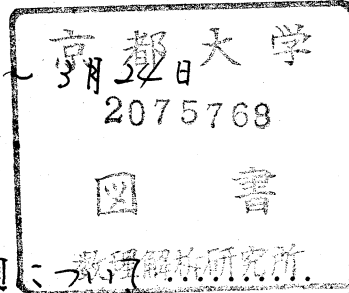 京都大学
~3月24日
2075768
図書
数理解析研究所
について..........